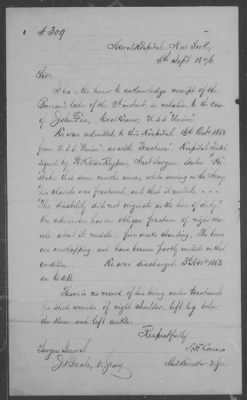 # 309
Naval Hospital New York,
5th Sept 1876
Sir
I have the honor to acknowledge receipt of the
Bureau's letter of the instant in relation to the case
of John Fee, Coal Heaver, U.S.S "Union".
He was admitted to this Hospital 16th Octo 1863
from U.S.S "Union", as with Fracture. Hospital Ticket
signed by Asst Surgeon states "He
states that some months since, while
his clavicle was fractured and that it
The disability did not originate in the line of duty"
On admission has an oblique fracture of right clavi-
cle about its middle, five weeks standing. The bones
are overlapping and have become partly united in this
condition. He was discharged 1863
on
There is no record of his being under treatment
for shell wounds of right shoulder, left leg below
the knee and left ankle.
Respectfully
Surgeon General
J. Beale, U.S. Navy
Med Director